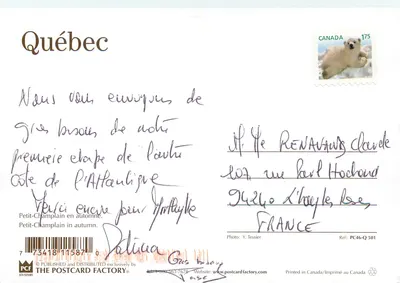 Québec
CANADA 175
Nous vous envoyons de
gros bisous de notre
première étape de l'autre
côté de l'Atlantique
Merci encore pour
Petit-Champlain en automne.
Petit-Champlain in autumn.
M. Me RENAVAND Claude
107 rue Paul Hochard
94240 L'Haÿ les Roses
FRANCE
Photo: Y. Tessier Réf.: PC46-Q 501
7 53418 11587 0
PUBLISHED and DISTRIBUTED exclusively by
THE POSTCARD FACTORY
www.postcardfactory.com
Printed in Canada/Imprimé au Canada
Gros